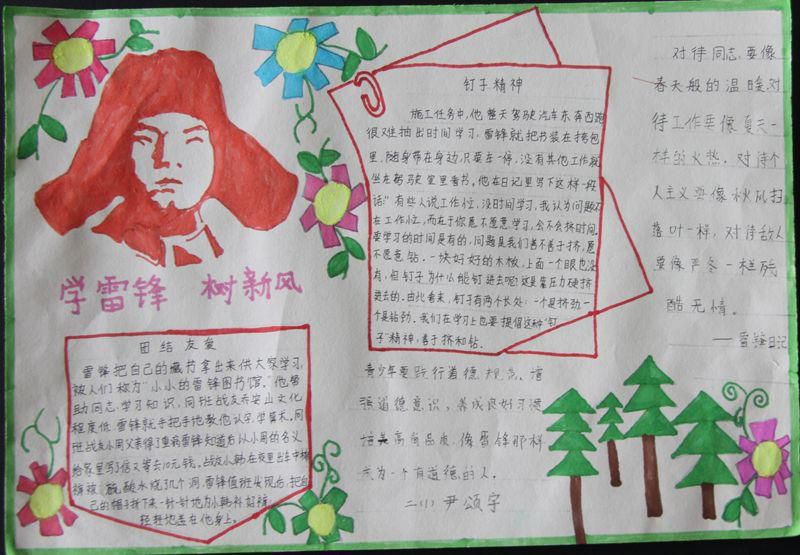 学雷锋 树新风
团结友爱
雷锋把自己的藏书拿出来供大家学习,
被人们称为"小小的雷锋图书馆。"他帮
助同志学习知识,同班战友乔安山文化
程度低,雷锋就手把手地教他认字,学算术。同
班战友小周父亲得了重病雷锋知道后以小周的名义
给家里写了信又寄去10元钱。战友小韩在夜里出车中棉
裤被硫酸水烧了几个洞,雷锋值班发现后把自
己的帽子拆下来一针一针地为小韩补好裤
轻轻地盖在他身上。
钉子精神
施工任务中,他整天驾驶汽车东奔西跑
很难抽出时间学习,雷锋就把书装在挎包
里,随身带在身边,只要车一停,没有其他工作就
坐在驾驶室里看书。他在日记里写下这样一段
话:"有些人说工作忙,没时间学习,我认为问题不
在工作忙,而在于你愿不愿意学习,会不会挤时间。
要学习的时间是有的,问题是我们善不善于挤,愿
不愿意钻。一块好好的木板,上面一个眼也没
有,但钉子为什么能钉进去呢?这是靠压力硬挤
进去的。由此看来,钉子有两个长处:一个是挤劲一
个是钻劲。我们在学习上也要提倡这种"钉
子"精神,善于挤和钻。
青少年要践行道德规范。增
强道德意识,养成良好习惯
培养高尚品质,像雷锋那样
成为一个有道德的人。
二(1) 尹颂宇
对待同志要像
春天般的温暖,对
待工作要像夏天一
样的火热,对待个
人主义要像秋风扫
落叶一样,对待敌人
要像严冬一样残
酷无情。
——雷锋日记